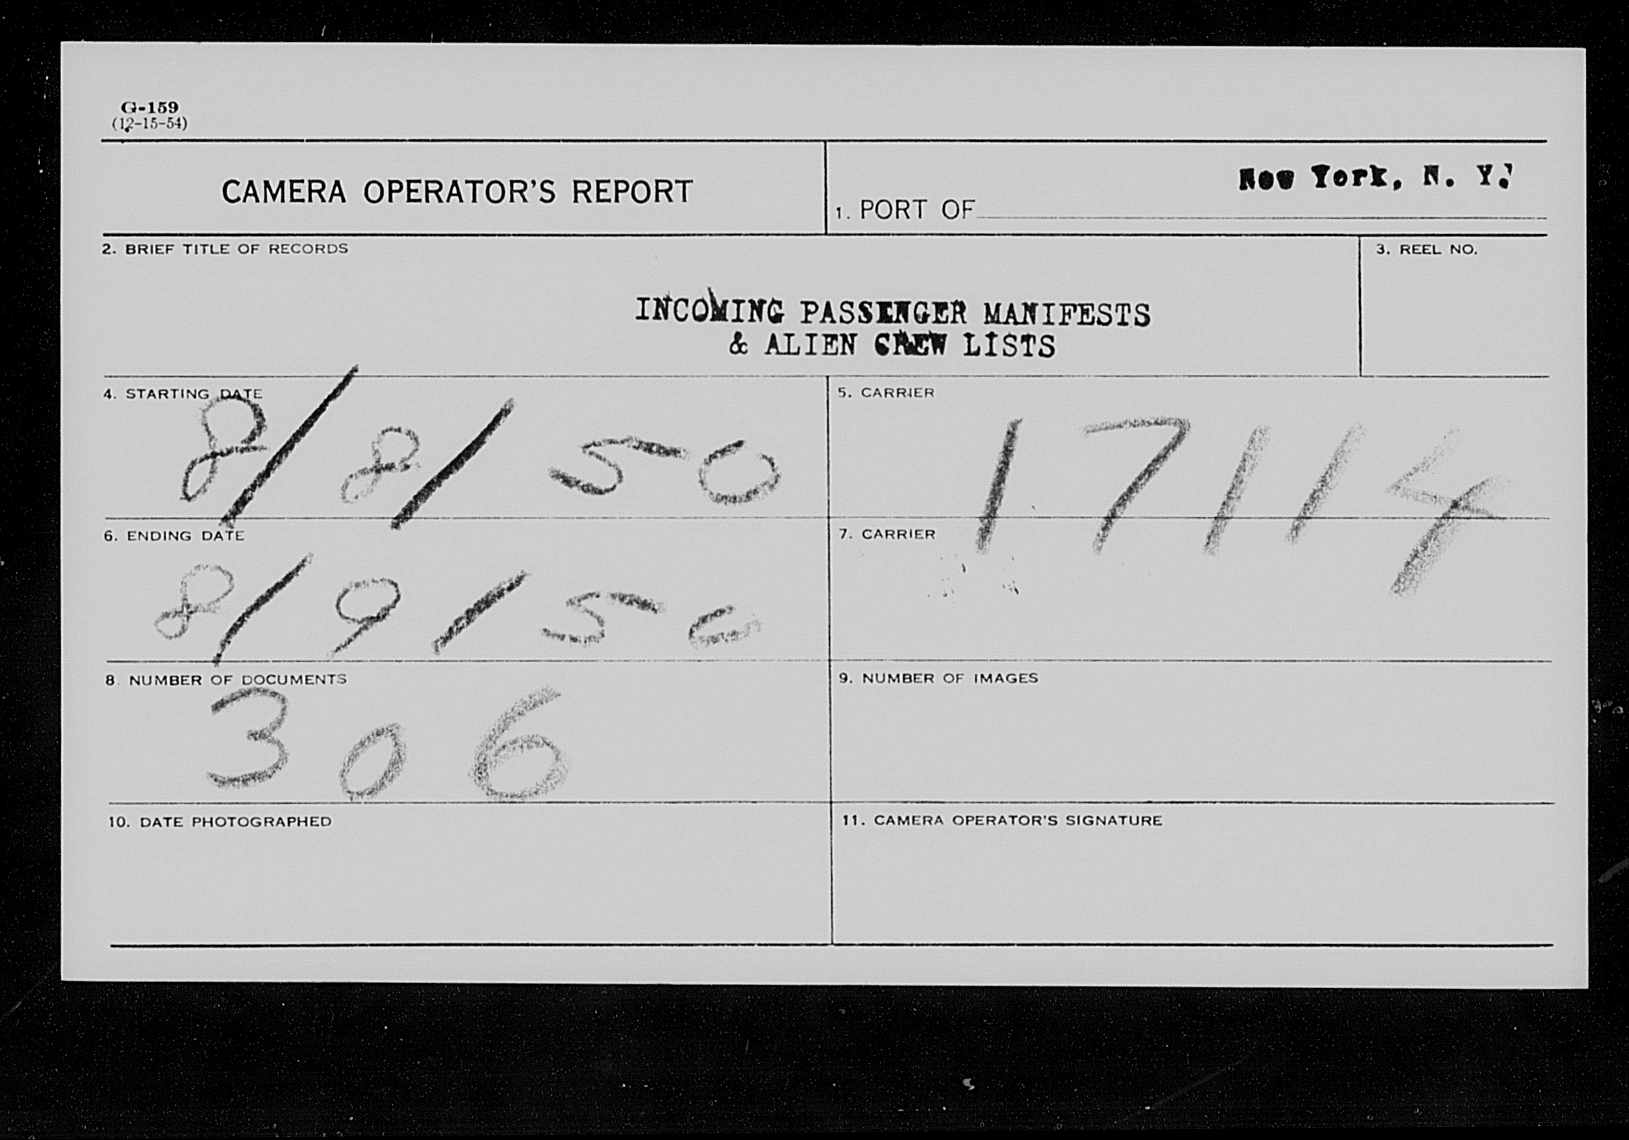 G-159
(12-15-54)
CAMERA OPERATOR'S REPORT
1. PORT OF New York, N. Y.
2. BRIEF TITLE OF RECORDS
3. REEL NO.
INCOMING PASSENGER MANIFESTS
& ALIEN CREW LISTS
4. STARTING DATE
8/8/50
5. CARRIER
17114
6. ENDING DATE
8/9/50
7. CARRIER
8. NUMBER OF DOCUMENTS
306
9. NUMBER OF IMAGES
10. DATE PHOTOGRAPHED
11. CAMERA OPERATOR'S SIGNATURE